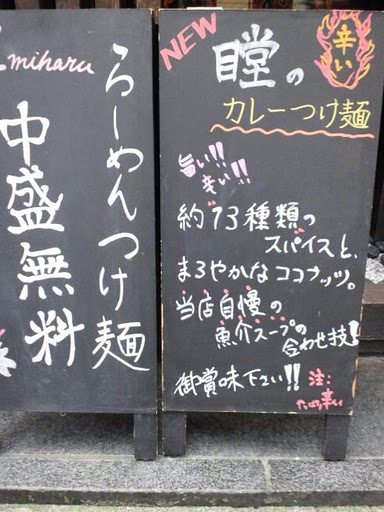 miharu
らーめんつけ麺
中盛無料
NEW
瞠の
辛い
カレーつけ麺
旨い!!
辛い!!
約13種類の
スパイスと、
まろやかなココナッツ。
当店自慢の
魚介スープの
合わせ技!
御賞味下さい!!
注:
やっぱ辛い